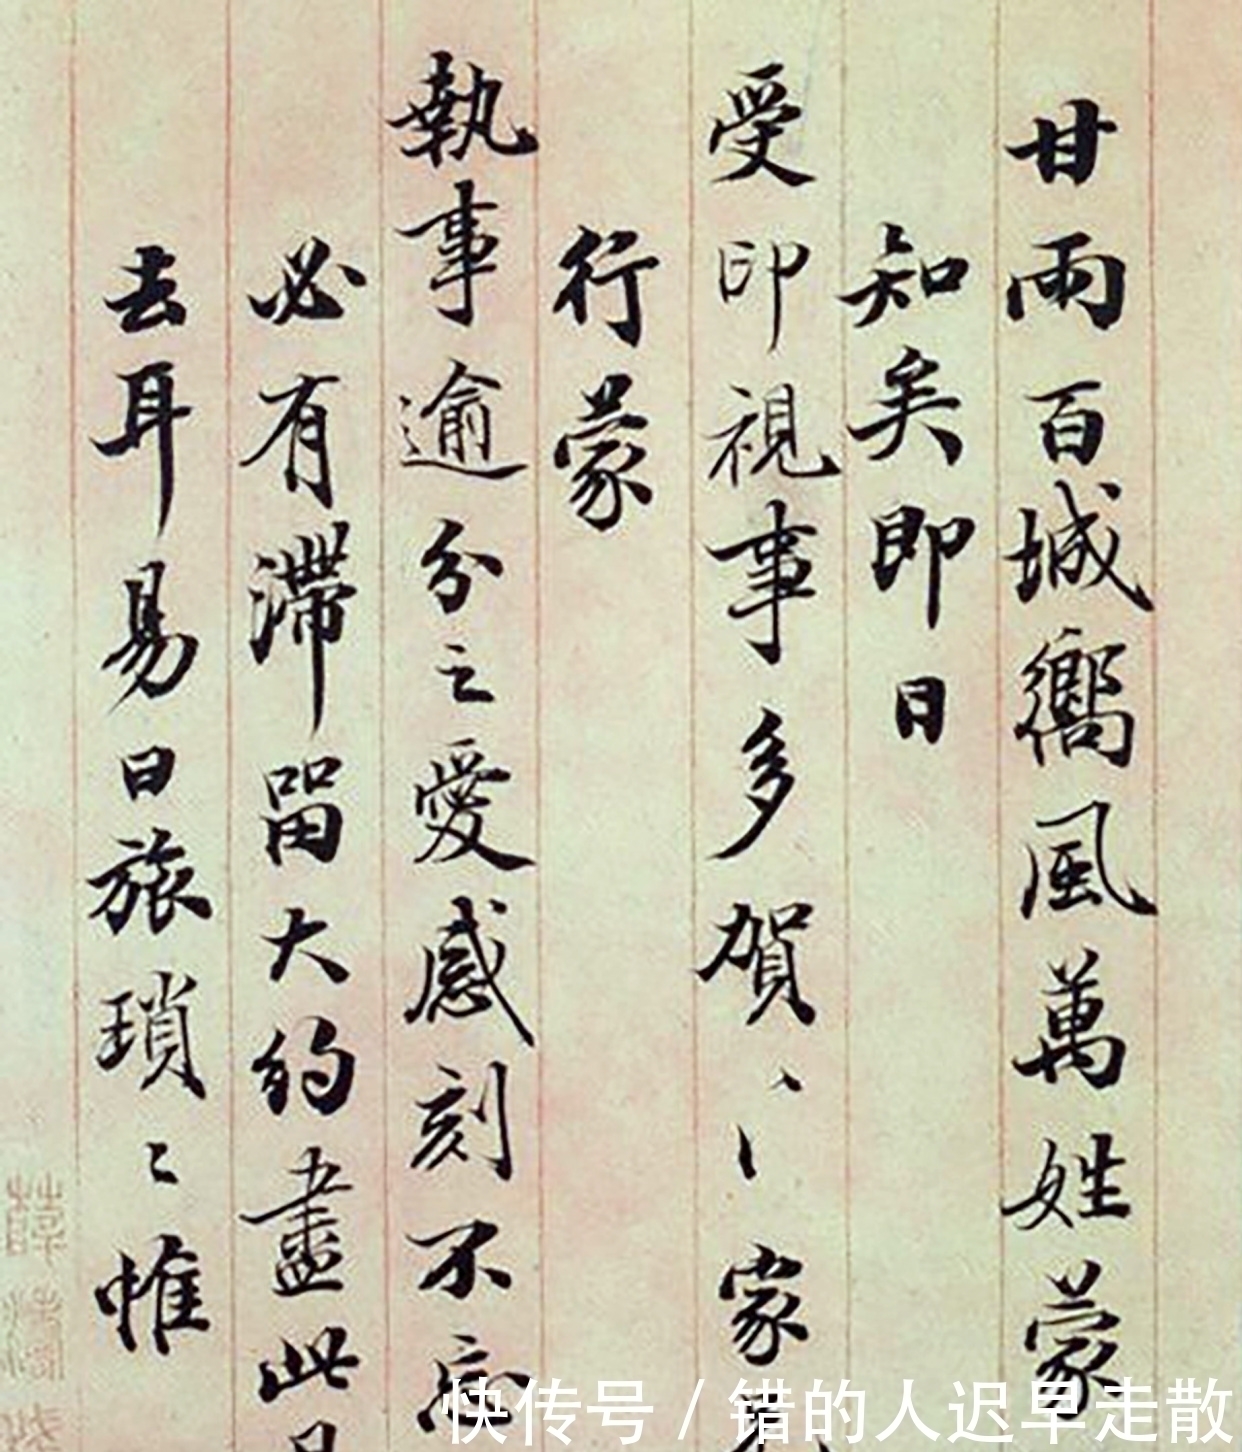 甘雨百城嚮風萬姓蒙
知矣即日
受印視事多賀〻〻家
行蒙
執事逾分之愛感刻不忘
必有滯留大約盡此月
去耳易曰旅瑣〻惟
快传号/错的人迟早走散